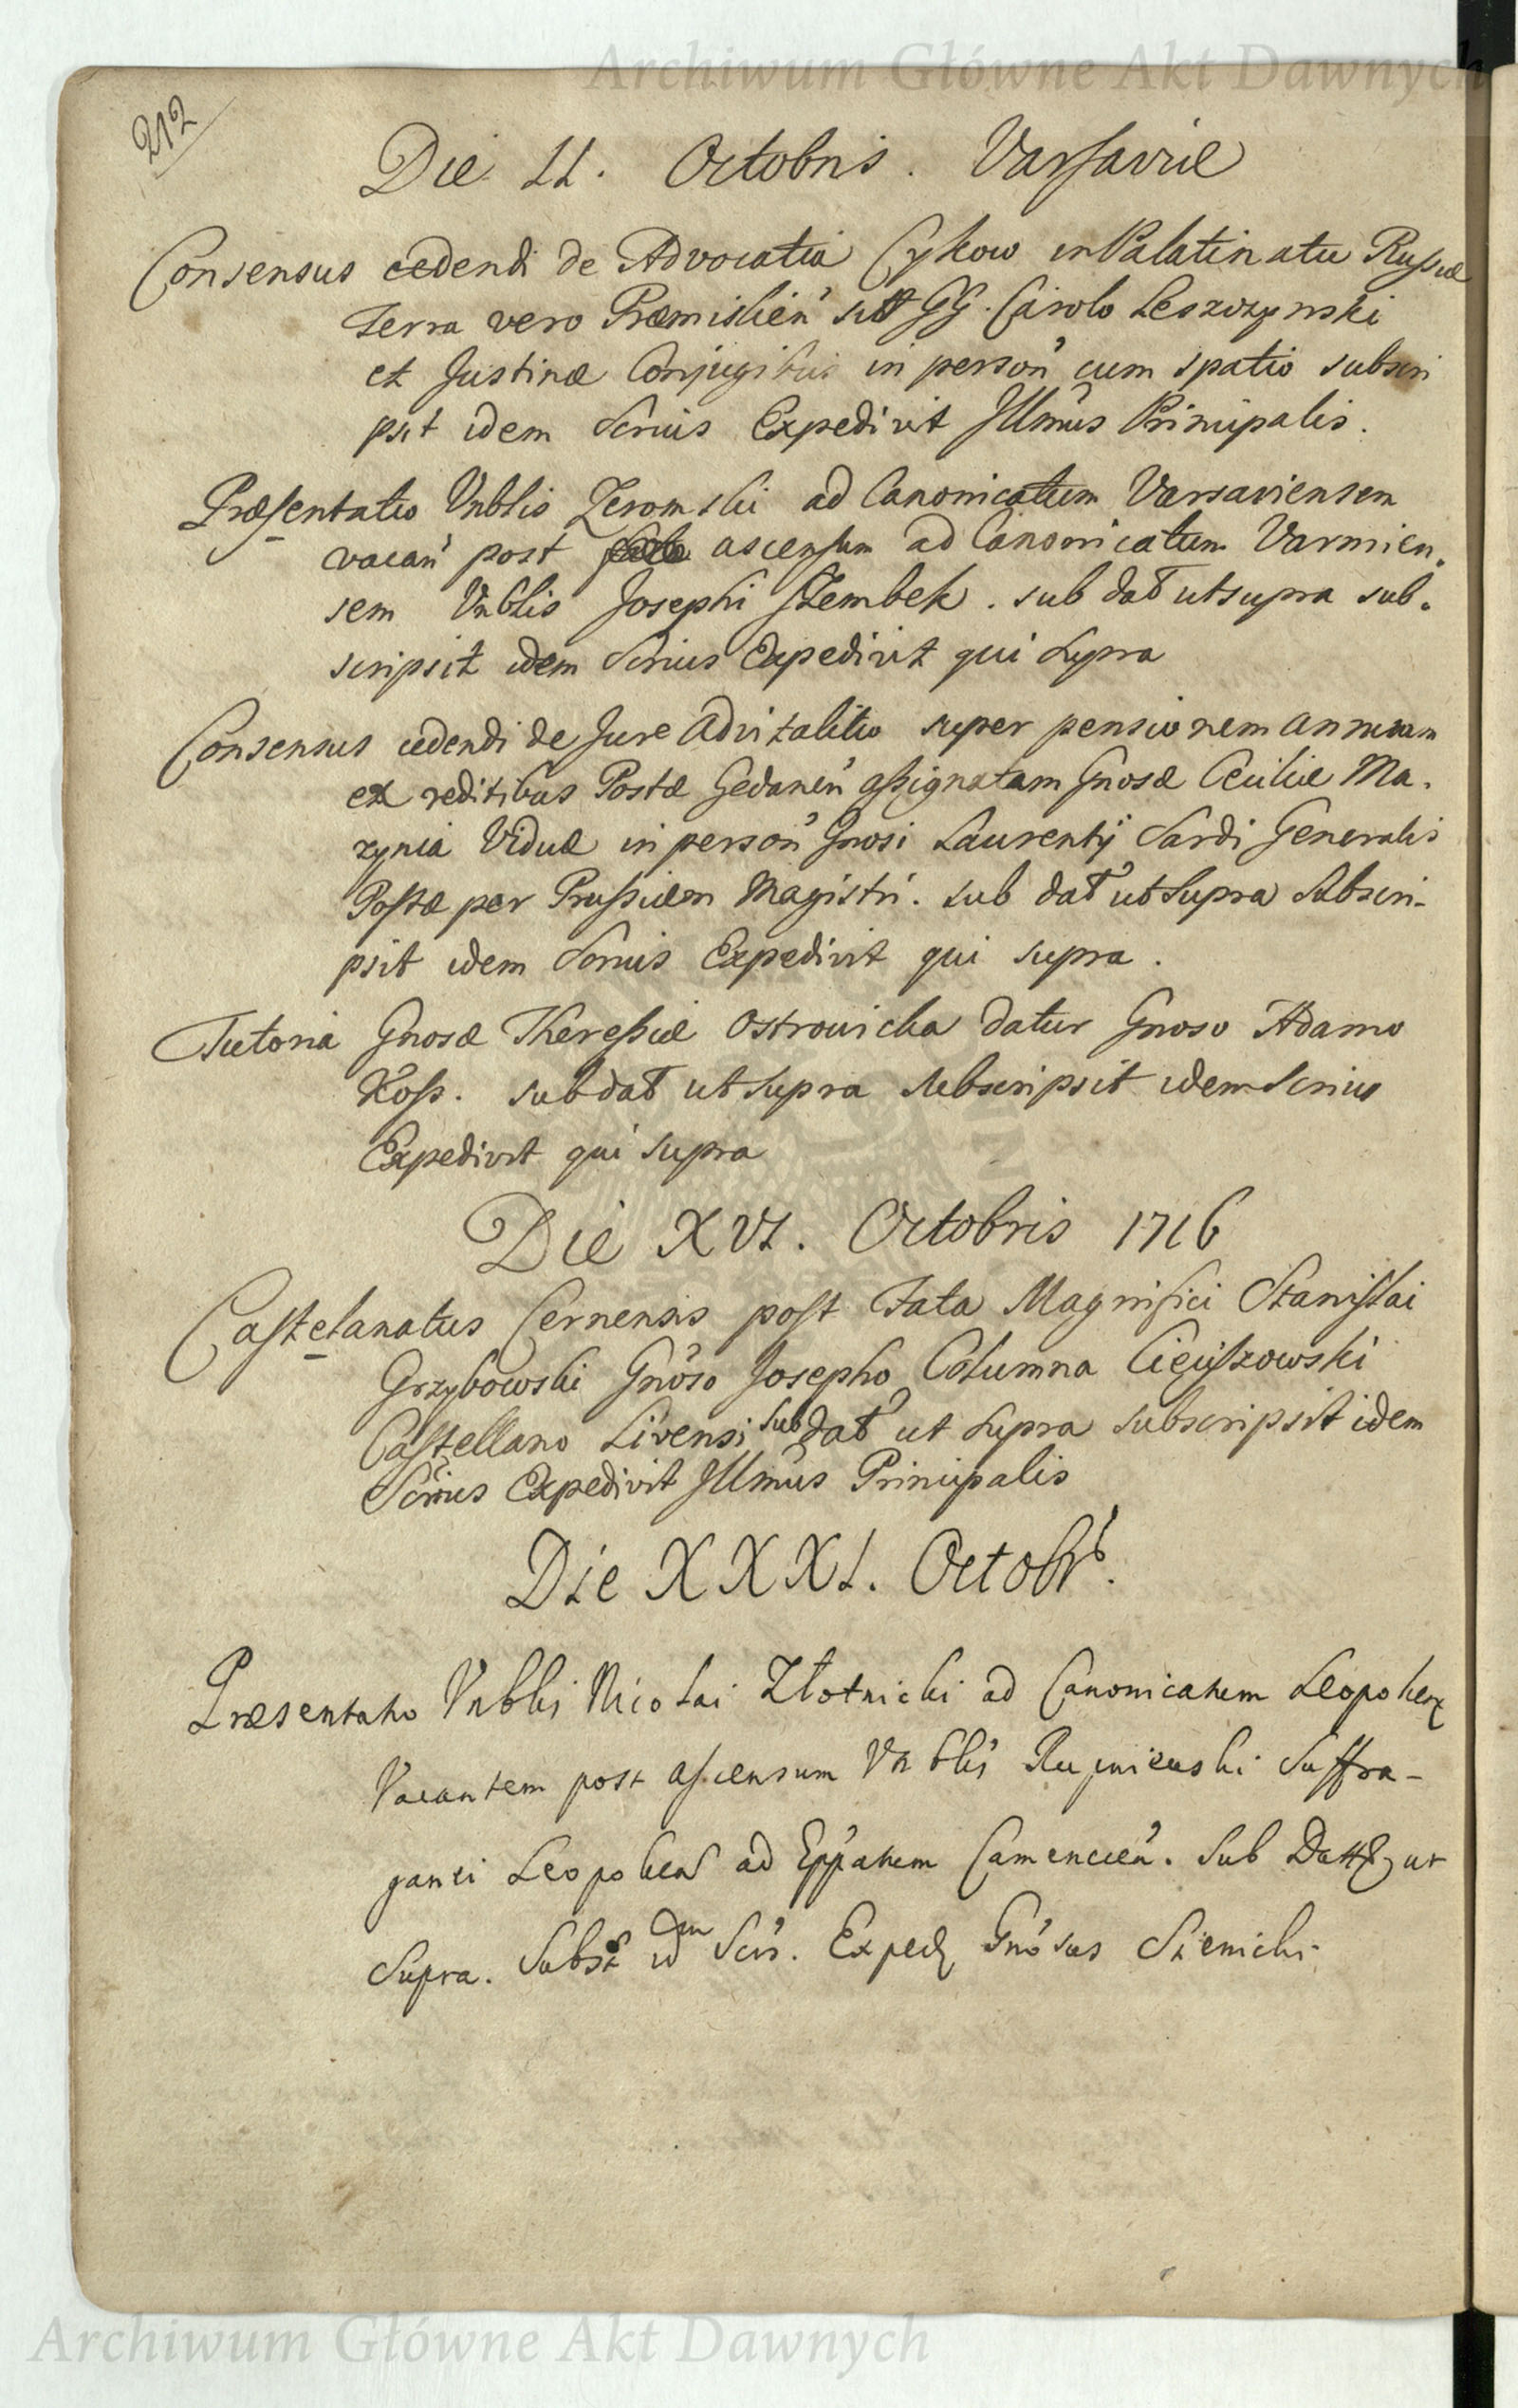 Archiwum Główne Akt Dawnych
212
Die 11. Octobris. Varsaviæ
Consensus cedendi de Advocatia Cykow in Palatinatu Russiæ
terra vero Præmislien̄ GG. Carolo Leszczynski
et Justinæ Conjugibus in person̄ cum spatio subscri
psit idem Sĕrius Expedivit Jllm̄us Principalis.
Præsentatio Vnblis Zeromski ad Canonicatum Varsaviensem
vacan̄ post ascensum ad Canonicatum Varmien.
sem Vnblis Josephi Szembek. sub dat̄ ut supra sub.
scripsit idem Sĕrius Expedivit qui supra
Consensus cedendi de Jure advitalitio super pensionem annuam
ex reditibus Postæ Gedanen̄ assignatam Gnosæ Ceciliæ Ma.
zynia Viduæ in person̄ Gnosi Laurentij Sardi Generalis
Postæ per Prussiam Magistri. sub dat̄ ut supra subscri-
psit idem Sĕrius Expedivit qui supra.
Tutoria Gnosæ Theressiæ Ostrowicka datur Gnoso Adamo
Koss. sub dat̄ ut supra subscripsit idem Sĕrius
Expedivit qui supra
Die XVI. Octobris 1716
Castelanatus Cernensis post Fata Magnifici Stanislai
Grzybowski Gnōso Josepho Columna Cieciszowski
Castellano Livensi sub dat̄ ut supra subscripsit idem
Sĕrius Expedivit Jllm̄us Principalis
Die XXXI. Octobr̄.
Præsentatio Vnblis Nicolai Złotnicki ad Canonicatum Leopolien
Vacantem post ascensum Vnblis Rupniewski Suffra-
ganei Leopolien ad Epp̄atum Camencien̄. Sub Datt ut
Supra. Subst idem Scrs. Exped Gnōsus Sienicki.
Archiwum Główne Akt Dawnych